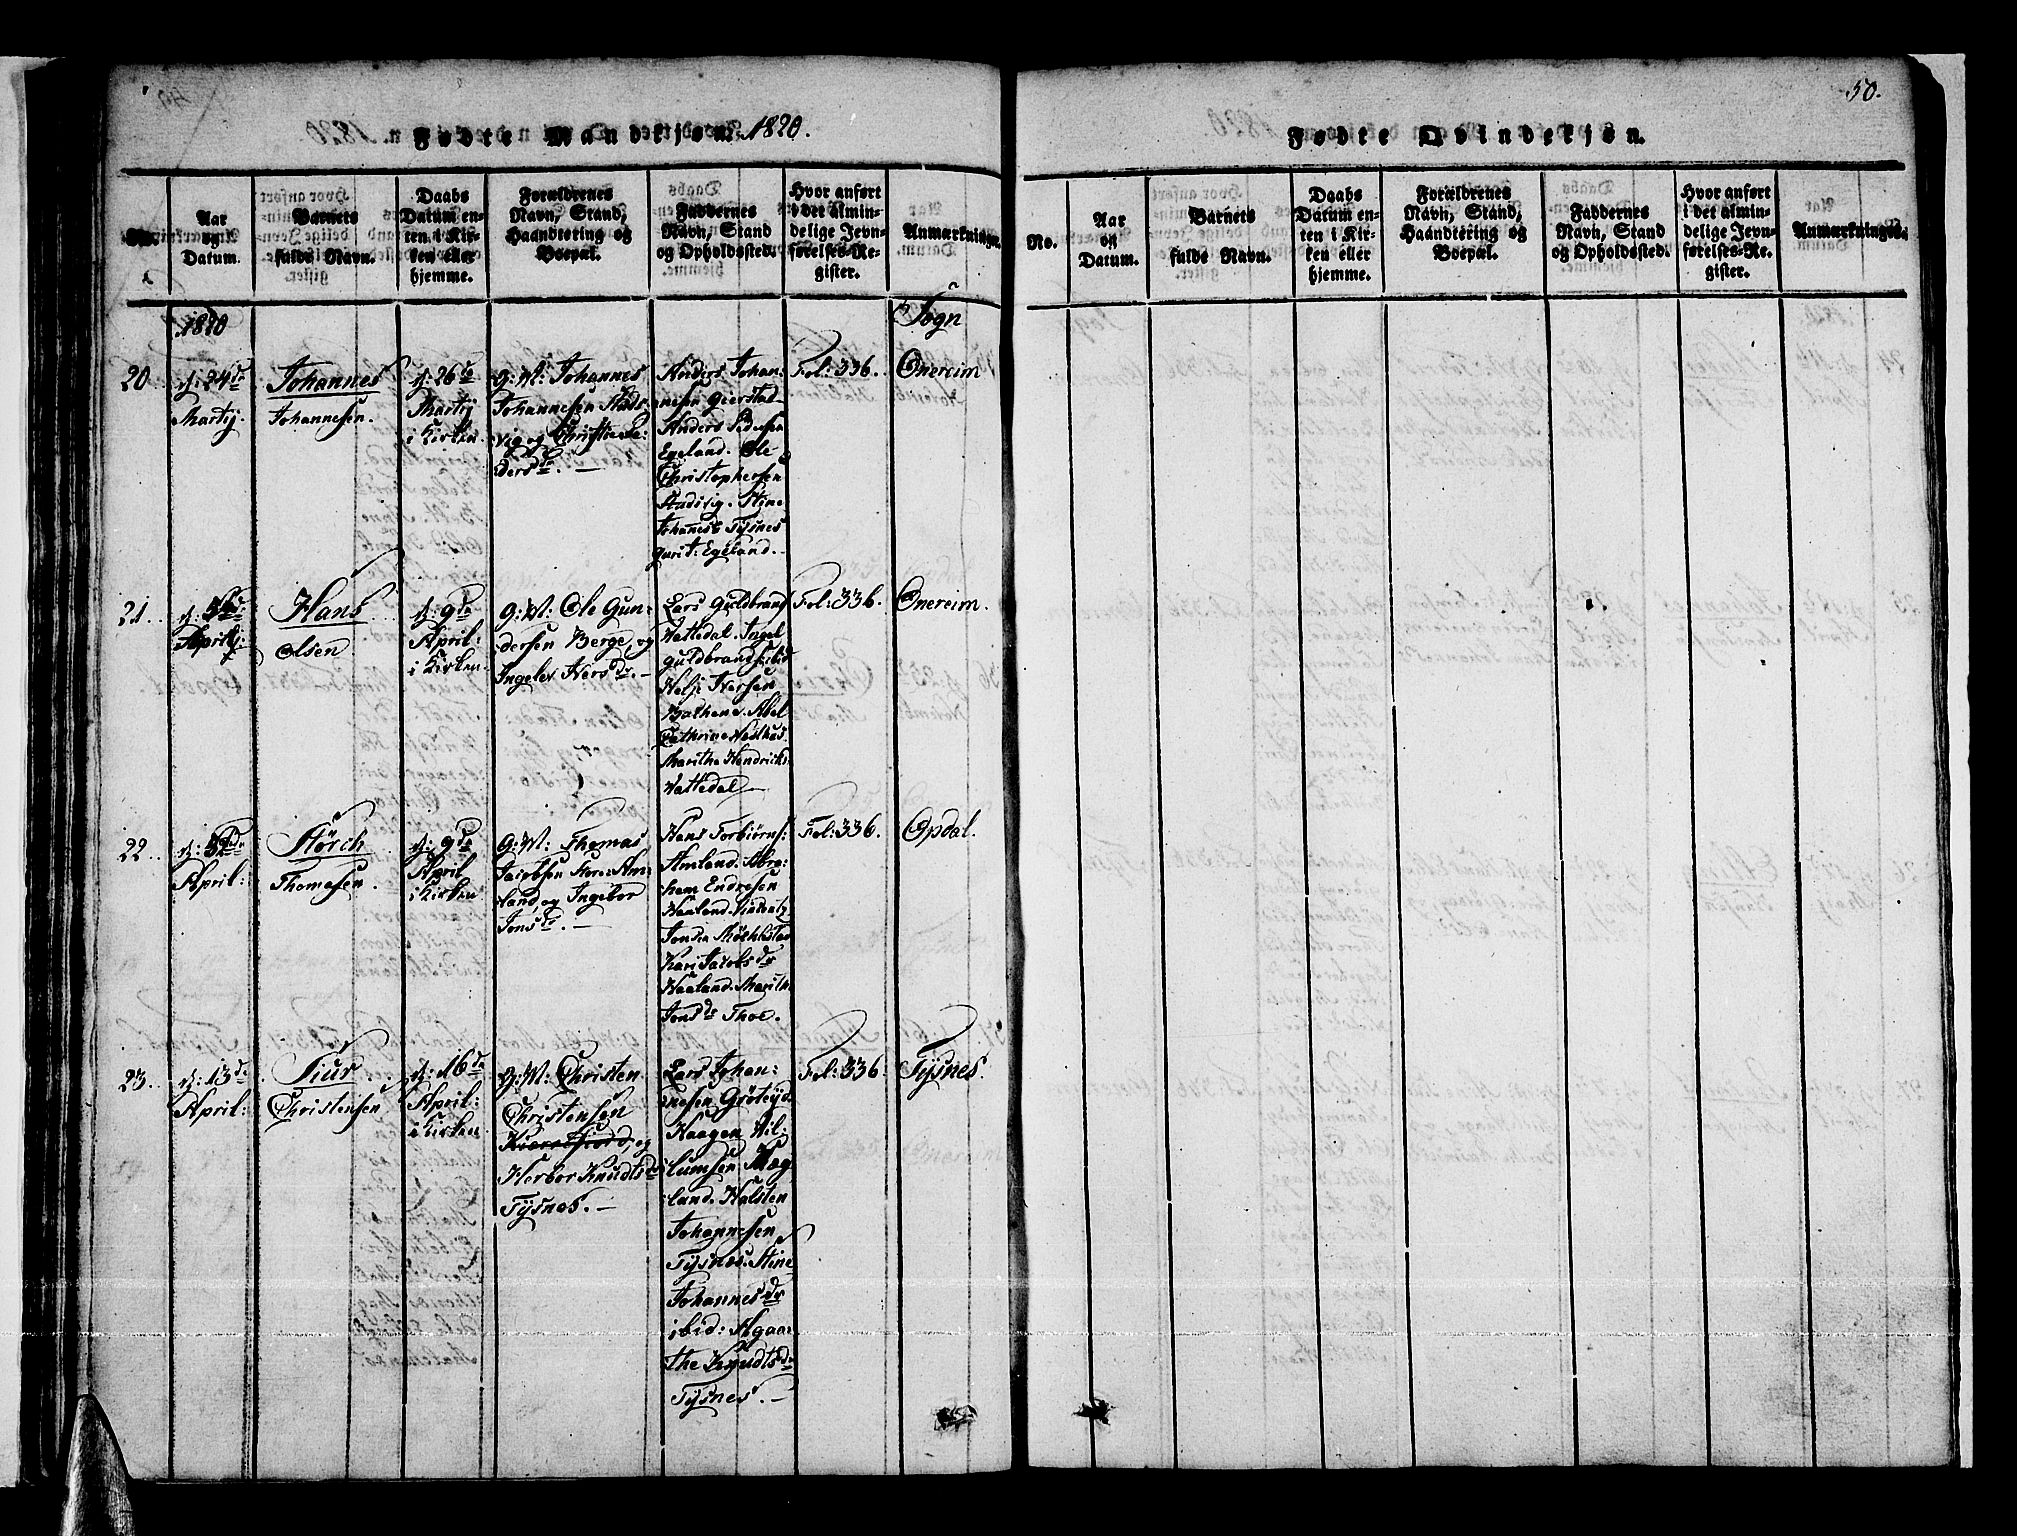 Fødte Mandkjøn. 1820.
No.
Aar
og
Datum.
Barnets
fulde Navn.
Daabs
Datum en-
ten i Kir-
ken eller
hjemme.
Forældrenes
Navn, Stand,
Haandtering og
Boepæl.
Faddernes
Navn, Stand
og Opholdssted.
Hvor anført
i det almin-
delige Jevn-
førelses-Re-
gister.
Anmærkninger.
1820
Sogn
20
d: 24de
Martij.
Johannes
Johannesen.
d: 26de
Martij
i Kirken.
G: M: Johannes
Johannesen Stads-
vig og Christie Pe-
dersdr. —
Anders Johan-
nesen Geerstad
Anders Pedersen
Egeland. Ole
Christophersen
Stadsvig. Stine
Johannesd. Tysnes
Gurit: Egeland.
Fol: 336.
Onereim
21.
April:
Hans
Olsen
d: 9de
April:
i Kirken.
G: M: Ole Gun-
dersen Berge, og
Ingelev Iversdr. —
Lars Guldbrand
Vattedal. Ingel
Guldbrands: ibid
Helje Iversen
Abel
Cathrine
Marithe Hendricks
Vattedal
Fol: 336.
Onereim.
22.
April:
Størch
Thomesen.
d: 9de
April
i Kirken.
G: M: Thomas
Jacobsen Am-
land, og Ingebor
Jonsdr. —
Hans Torbiørns:
Amland. Abra-
ham Endresen
Haaland.
Kari Jacobsdr
Haaland. Marith
Jonsdr Thoe.
Fol: 336.
Opdal.
23.
d: 13de
April:
Siur
Christensen
d: 16de
April:
i Kirken.
G: M: Christen
Christensen
og
Herbor Knudtsdr
Tysnes. —
Lars Johan-
nesen Grøteiyd
Haagen Vil-
lumsen Mæg
land. Halsten
Johannesen
Tysnes. Stine
Johannesdr
ibid: Agaa-
the Knudtsdr
Tysnes. —
Fol: 336
Tysnes.
50.
Fødte Qvindekjøn.
No.
Aar
og
Datum.
Barnets
fulde Navn.
Daabs
Datum en-
ten i Kir-
ken eller
hjemme.
Forældrenes
Navn, Stand,
Haandtering og
Boepæl.
Faddernes
Navn, Stand
og Opholdssted.
Hvor anført
i det almin-
delige Jevn-
førelses-Re-
gister.
Anmærkninger.